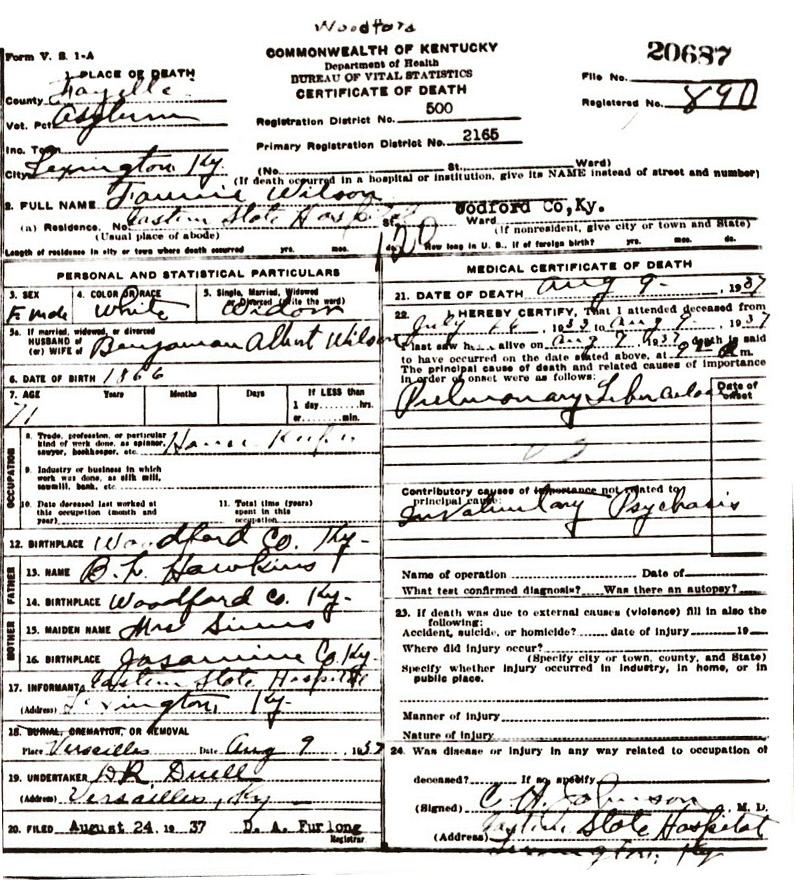 Woodford
COMMONWEALTH OF KENTUCKY
Department of Health
BUREAU OF VITAL STATISTICS
CERTIFICATE OF DEATH
Form V. S. 1-A
20687
File No.
Registered No. 890
1. PLACE OF DEATH
County Fayette
Vot. Pct. Asylum
Inc. Town
City Lexington, Ky.
Registration District No. 500
Primary Registration District No. 2165
(No. St. Ward)
(If death occurred in a hospital or institution, give its NAME instead of street and number)
2. FULL NAME Wilson
(a) Residence. No. Eastern State Hospital St. Ward oodford Co,Ky.
(Usual place of abode) (If nonresident, give city or town and State)
Length of residence in city or town where death occurred yrs. mos. ds. How long in U. S., if of foreign birth? yrs. mos. ds.
PERSONAL AND STATISTICAL PARTICULARS
3. SEX 4. COLOR OR RACE 5. Single, Married, Widowed or Divorced (write the word)
White Widow
5a. If married, widowed, or divorced
HUSBAND of
(or) WIFE of Benjaman Albert Wilson
6. DATE OF BIRTH 1866
7. AGE Years Months Days If LESS than
71 1 day........hrs.
or........min.
OCCUPATION
8. Trade, profession, or particular
kind of work done, as spinner,
sawyer, bookkeeper, etc. House Keeper
9. Industry or business in which
work was done, as silk mill,
sawmill, bank, etc.
10. Date deceased last worked at
this occupation (month and
year)
11. Total time (years)
spent in this
occupation
12. BIRTHPLACE Woodford Co. Ky-
FATHER
13. NAME B. L. Hawkins
14. BIRTHPLACE Woodford Co. Ky-
MOTHER
15. MAIDEN NAME Mrs Simms
16. BIRTHPLACE Jasamine Co. Ky
17. INFORMANT Eastern State Hospital
(Address) Lexington, Ky-
18. BURIAL, CREMATION, OR REMOVAL
Place Versailles Date Aug 9, 1937
19. UNDERTAKER D R Duell
(Address) Versailles, Ky
20. FILED August 24, 19 37 D. A. Furlong
Registrar
MEDICAL CERTIFICATE OF DEATH
21. DATE OF DEATH Aug 9-, 1937
22. I HEREBY CERTIFY, That I attended deceased from
July, 1933 to Aug 9, 1937
I last saw h... alive on Aug 9, 1937 death is said
to have occurred on the date stated above, at m.
The principal cause of death and related causes of importance
in order of onset were as follows:
Date of onset
Pulmonary Tuberculosis
Contributory causes of importance not related to
principal cause:
Involuntary Psychosis
Name of operation Date of
What test confirmed diagnosis? Was there an autopsy?
23. If death was due to external causes (violence) fill in also the
following:
Accident, suicide, or homicide? date of injury 19
Where did injury occur?
(Specify city or town, county, and State)
Specify whether injury occurred in industry, in home, or in
public place.
Manner of injury
Nature of injury
24. Was disease or injury in any way related to occupation of
deceased? If so, specify
(Signed) C. H. Johnson, M. D.
(Address) Eastern State Hospital
Lexington, Ky